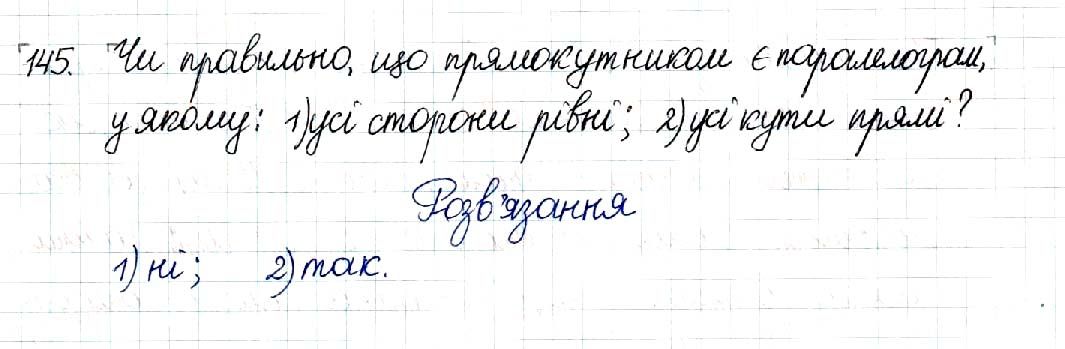 145. Чи правильно, що прямокутником є паралелограм,
у якому: 1) усі сторони рівні; 2) усі кути прямі?
Розв'язання
1) ні; 2) так.